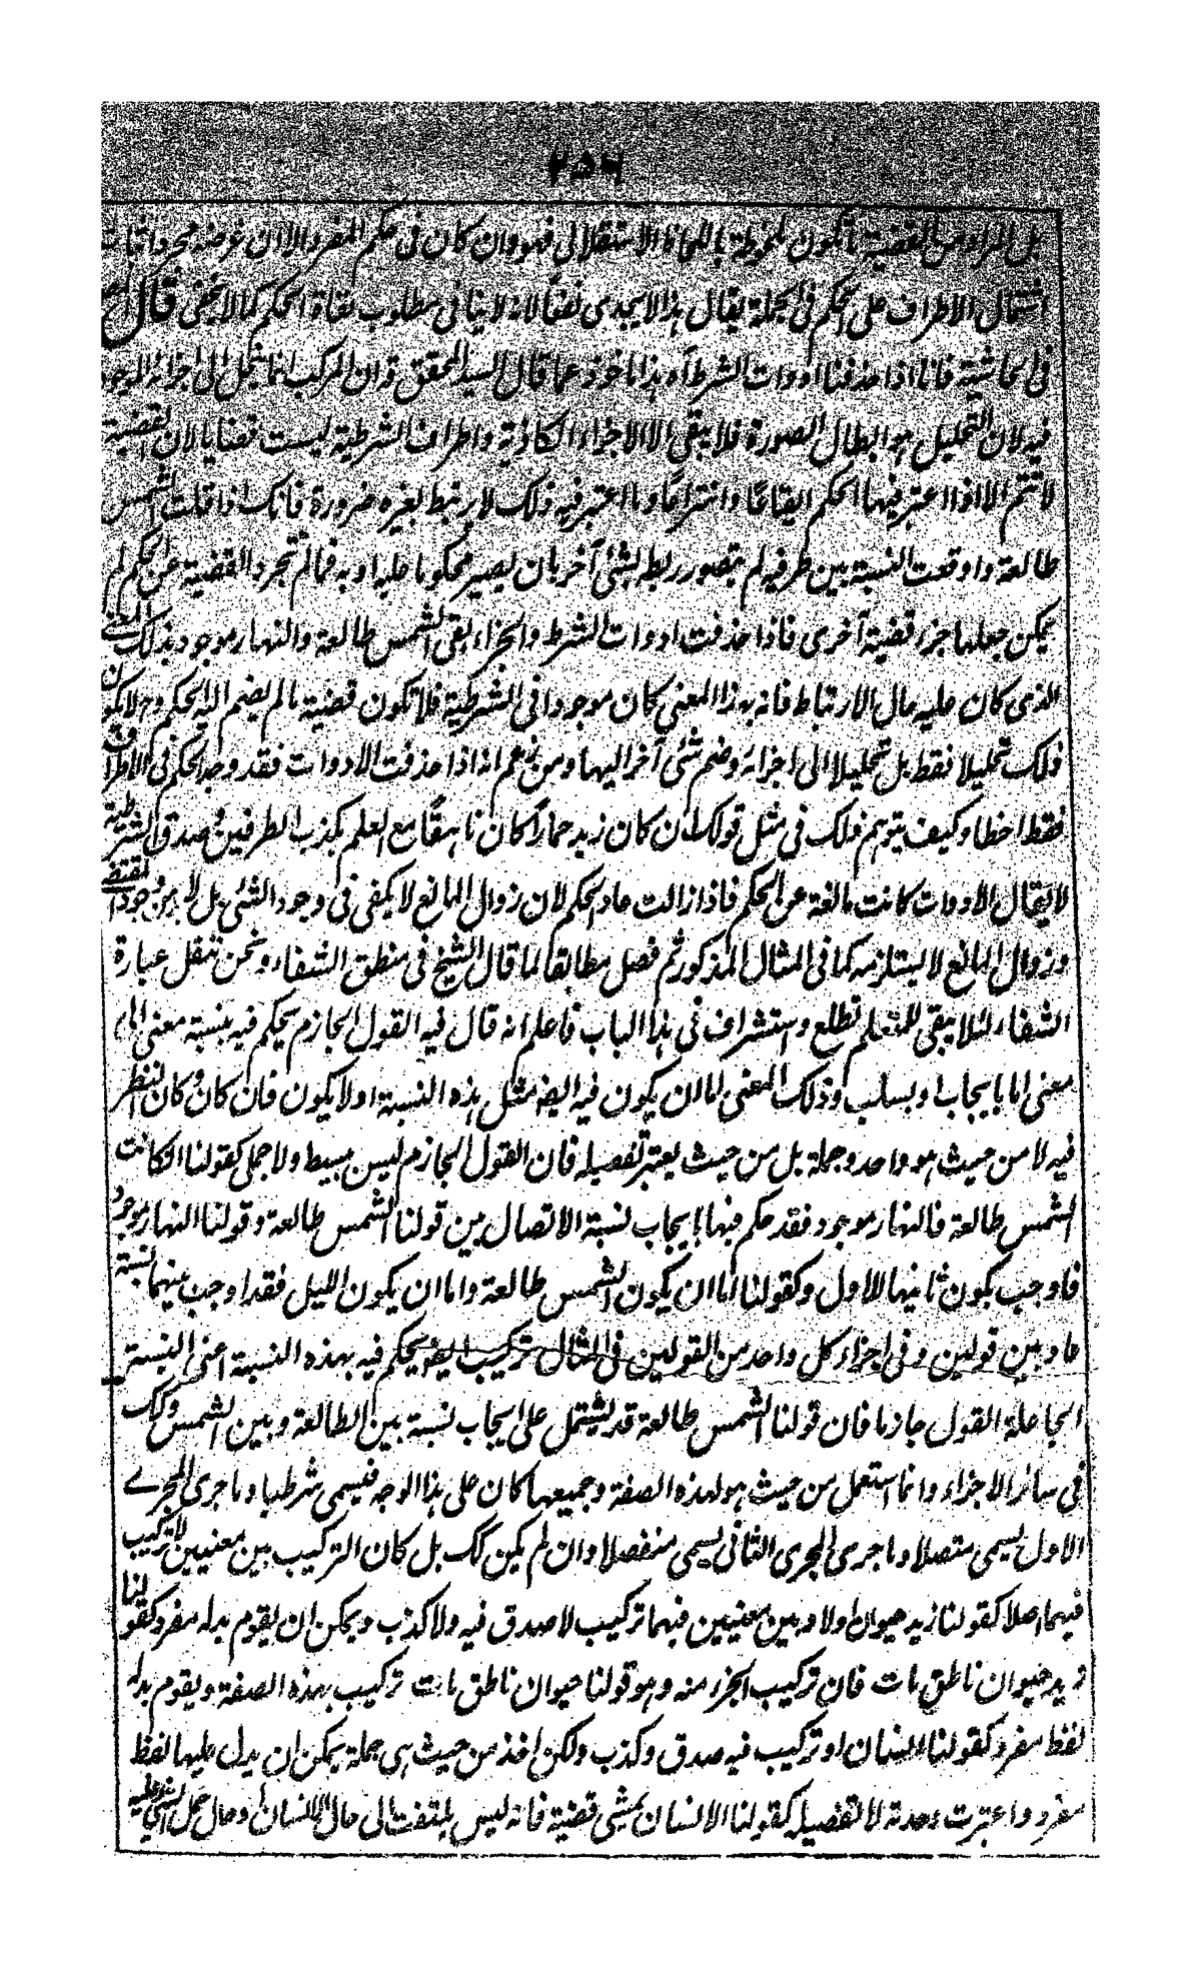 ٢٥٦
بل المراد من القضية ما تكون ملحوظة باللحاظ الاستقلالى فهو وان كان فى حكم المفرد الا ان غرضه مجرد اثبات
اشتمال الاطراف على الحكم فى الجملة يقال هذا لا يجدى نفعا لانه لا ينافى مطلوب نفاة الحكم كما لا يخفى قال المص
فى الحاشية فانا اذا حذفنا ادوات الشرط آه هذا ماخوذ عما قال السيد المحقق قه ان المركب انما ينحل الى اجزائه الموجودة
فيه لان التحليل هو ابطال الصورة فلا يبقى الا الاجزاء المادية واطراف الشرطية ليست قضايا لان القضية
لا تتم الا اذا اعتبر فيها الحكم ايقاعًا وانتزاعًا وما اعتبر فيه ذلك لا يرتبط بغيره ضرورة فانك اذا قلت الشمس
طالعة واوقعت النسبة بين طرفيه لم يتصور ربطه بشئ آخر بان يصير محكوما عليه او به فما لم تجرد القضية عن الحكم لم
يمكن جعلها جزء قضية آخرى فاذا حذفت ادوات الشرط والجزاء بقى الشمس طالعة والنهار موجود بذلك المعنى
الذى كان عليه حال الارتباط فانه بهذا المعنى كان موجودا فى الشرطية فلا تكون قضية ما لم يضم اليه الحكم وح لا يكون
ذلك تحليلا فقط بل تحليلا الى اجزائه وضم شئ آخر اليها ومن زعم انه اذا حذفت الادوات فقد وجد الحكم فى الاطراف
فقط اخطا وكيف يتوهم ذلك فى مثل قولك ان كان زيد حمارًا كان ناهقًا مع العلم بكذب الطرفين وصدق الشرطية
لا يقال الادوات كانت مانعة عن الحكم فاذا زالت عاد الحكم لان زوال المانع لا يكفى فى وجود الشئ بل لا بد من وجود المقتضى
وزوال المانع لا يستلزمه كما فى المثال المذكور ثم فصل مطابقا لما قال الشيخ فى منطق الشفاء ونحن ننقل عبارة
الشفاء لئلا يبقى للمتعلم تطلع واستشراف فى هذا الباب فاعلم انه قال فيه القول الجازم يحكم فيه بنسبة معنى الى
معنى اما بايجاب او بسلب وذلك المعنى اما ان يكون فيه ايضا مثل هذه النسبة او لا يكون فان كان وكان النظر
فيه لا من حيث هو واحد وجملة بل من حيث يعتبر تفصيله فان القول الجازم ليس ببسيط ولا حملى كقولنا ان كانت
الشمس طالعة فالنهار موجود فقد حكم فيها بايجاب نسبة الاتصال بين قولنا الشمس طالعة وقولنا النهار موجود
فاوجب بكون ثانيها للاول وكقولنا اما ان يكون الشمس طالعة واما ان يكون الليل فقد اوجب بينهما نسبة
عناد بين قولين وفى اجزاء كل واحد من القولين فى المثال تركيب ايضا يحكم فيه بهذه النسبة اعنى النسبة
الجاعلة القول جازما فان قولنا الشمس طالعة قد يشتمل على ايجاب نسبة بين الطالعة وبين الشمس وكك
فى سائر الاجزاء وانما استعمل من حيث هو لهذه الصفة وجميعها كان على هذا الوجه فيسمى شرطيا وما جرى المجرے
الاول يسمى متصلا وما جرى المجرى الثانى يسمى منفصلا وان لم يكن كك بل كان التركيب بين معنيين لا تركيب
فيهما اصلا كقولنا زيد حيوان او لا وبين معنيين فيهما تركيب لا صدق فيه ولا كذب ويمكن ان يقوم بدله مفرد كقولنا
زيد حيوان ناطق مائت فان تركيب الجزء منه وهو قولنا حيوان ناطق مائت تركيب بهذه الصفة ويقوم بدله
لفظ مفرد كقولنا انسان او تركيب فيه صدق وكذب ولكن اخذ من حيث هى جملة يمكن ان يدل عليها لفظ
مفرد واعتبرت وحدته لا تفصيله كقولنا الانسان يمشى قضية فانه ليس يلتفت الى حال الانسان او حال حمل المشى عليه